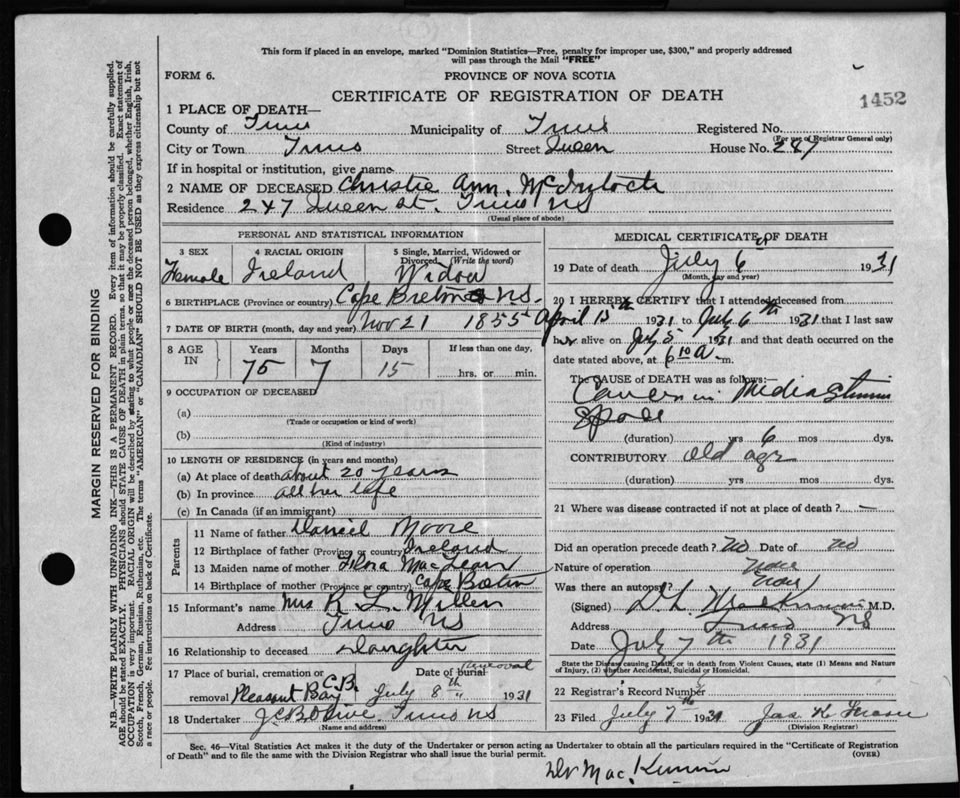 This form if placed in an envelope, marked "Dominion Statistics—Free, penalty for improper use, $300," and properly addressed
will pass through the Mail "FREE"
FORM 6.
PROVINCE OF NOVA SCOTIA
CERTIFICATE OF REGISTRATION OF DEATH
1452
1 PLACE OF DEATH—
County of Truro Municipality of Truro Registered No.
(For use of Registrar General only)
City or Town Truro Street Queen House No.
If in hospital or institution, give name
2 NAME OF DECEASED Christie Ann McIntosh
Residence 247 Queen St. Truro NS
(Usual place of abode)
PERSONAL AND STATISTICAL INFORMATION
3 SEX Female
4 RACIAL ORIGIN Ireland
5 Single, Married, Widowed or Divorced (Write the word) Widow
6 BIRTHPLACE (Province or country) Cape Breton NS.
7 DATE OF BIRTH (month, day and year) Nov 21 1855
8 AGE IN Years 75 Months 7 Days 15 If less than one day, hrs. or min.
9 OCCUPATION OF DECEASED
(a)
(Trade or occupation or kind of work)
(b)
(Kind of industry)
10 LENGTH OF RESIDENCE (in years and months)
(a) At place of death about 20 years
(b) In province all her life
(c) In Canada (if an immigrant)
Parents
11 Name of father Daniel Moore
12 Birthplace of father (Province or country) Ireland
13 Maiden name of mother Flora MacLean
14 Birthplace of mother (Province or country) Cape Breton
15 Informant's name Mrs R. L. Miller
Address Truro NS
16 Relationship to deceased Daughter
17 Place of burial, cremation or removal Pleasant Bay C.B. Date of burial removal July 8th " 1931
18 Undertaker Truro NS
(Name and address)
MEDICAL CERTIFICATE OF DEATH
19 Date of death July 6 1931
(Month, day and year)
20 I HEREBY CERTIFY that I attended deceased from
April 15th 1931 to July 6th 1931 that I last saw
her alive on July 5 1931 and that death occurred on the
date stated above, at 6 10 A. m.
The CAUSE of DEATH was as follows:
Cancer in Mediastinum
Space
(duration) yrs 6 mos dys.
CONTRIBUTORY old age
(duration) yrs mos dys.
21 Where was disease contracted if not at place of death? —
Did an operation precede death? no Date of no
Nature of operation none
Was there an autopsy? none
(Signed) D. L. MacKinnon M.D.
Address Truro NS
Date July 7th 1931
State the Disease causing Death, or in death from Violent Causes, state (1) Means and Nature
of Injury, (2) whether Accidental, Suicidal or Homicidal.
22 Registrar's Record Number
23 Filed July 7th 1931 Jas K.
(Division Registrar)
Sec. 46—Vital Statistics Act makes it the duty of the Undertaker or person acting as Undertaker to obtain all the particulars required in the "Certificate of Registration
of Death" and to file the same with the Division Registrar who shall issue the burial permit. (OVER)
Dr MacKinnon
MARGIN RESERVED FOR BINDING
N.B.—WRITE PLAINLY WITH UNFADING INK—THIS IS A PERMANENT RECORD. Every item of information should be carefully supplied.
AGE should be stated EXACTLY. PHYSICIANS should STATE CAUSE OF DEATH in plain terms, so that it may be properly classified. Exact statement of
OCCUPATION is very important. RACIAL ORIGIN will be described by stating to what people or race the deceased person belonged, whether English, Irish,
Scotch, French, German, Russian, Ruthenian, etc. The terms "AMERICAN" or "CANADIAN" SHOULD NOT BE USED as they express citizenship but not
a race or people. See instructions on back of Certificate.